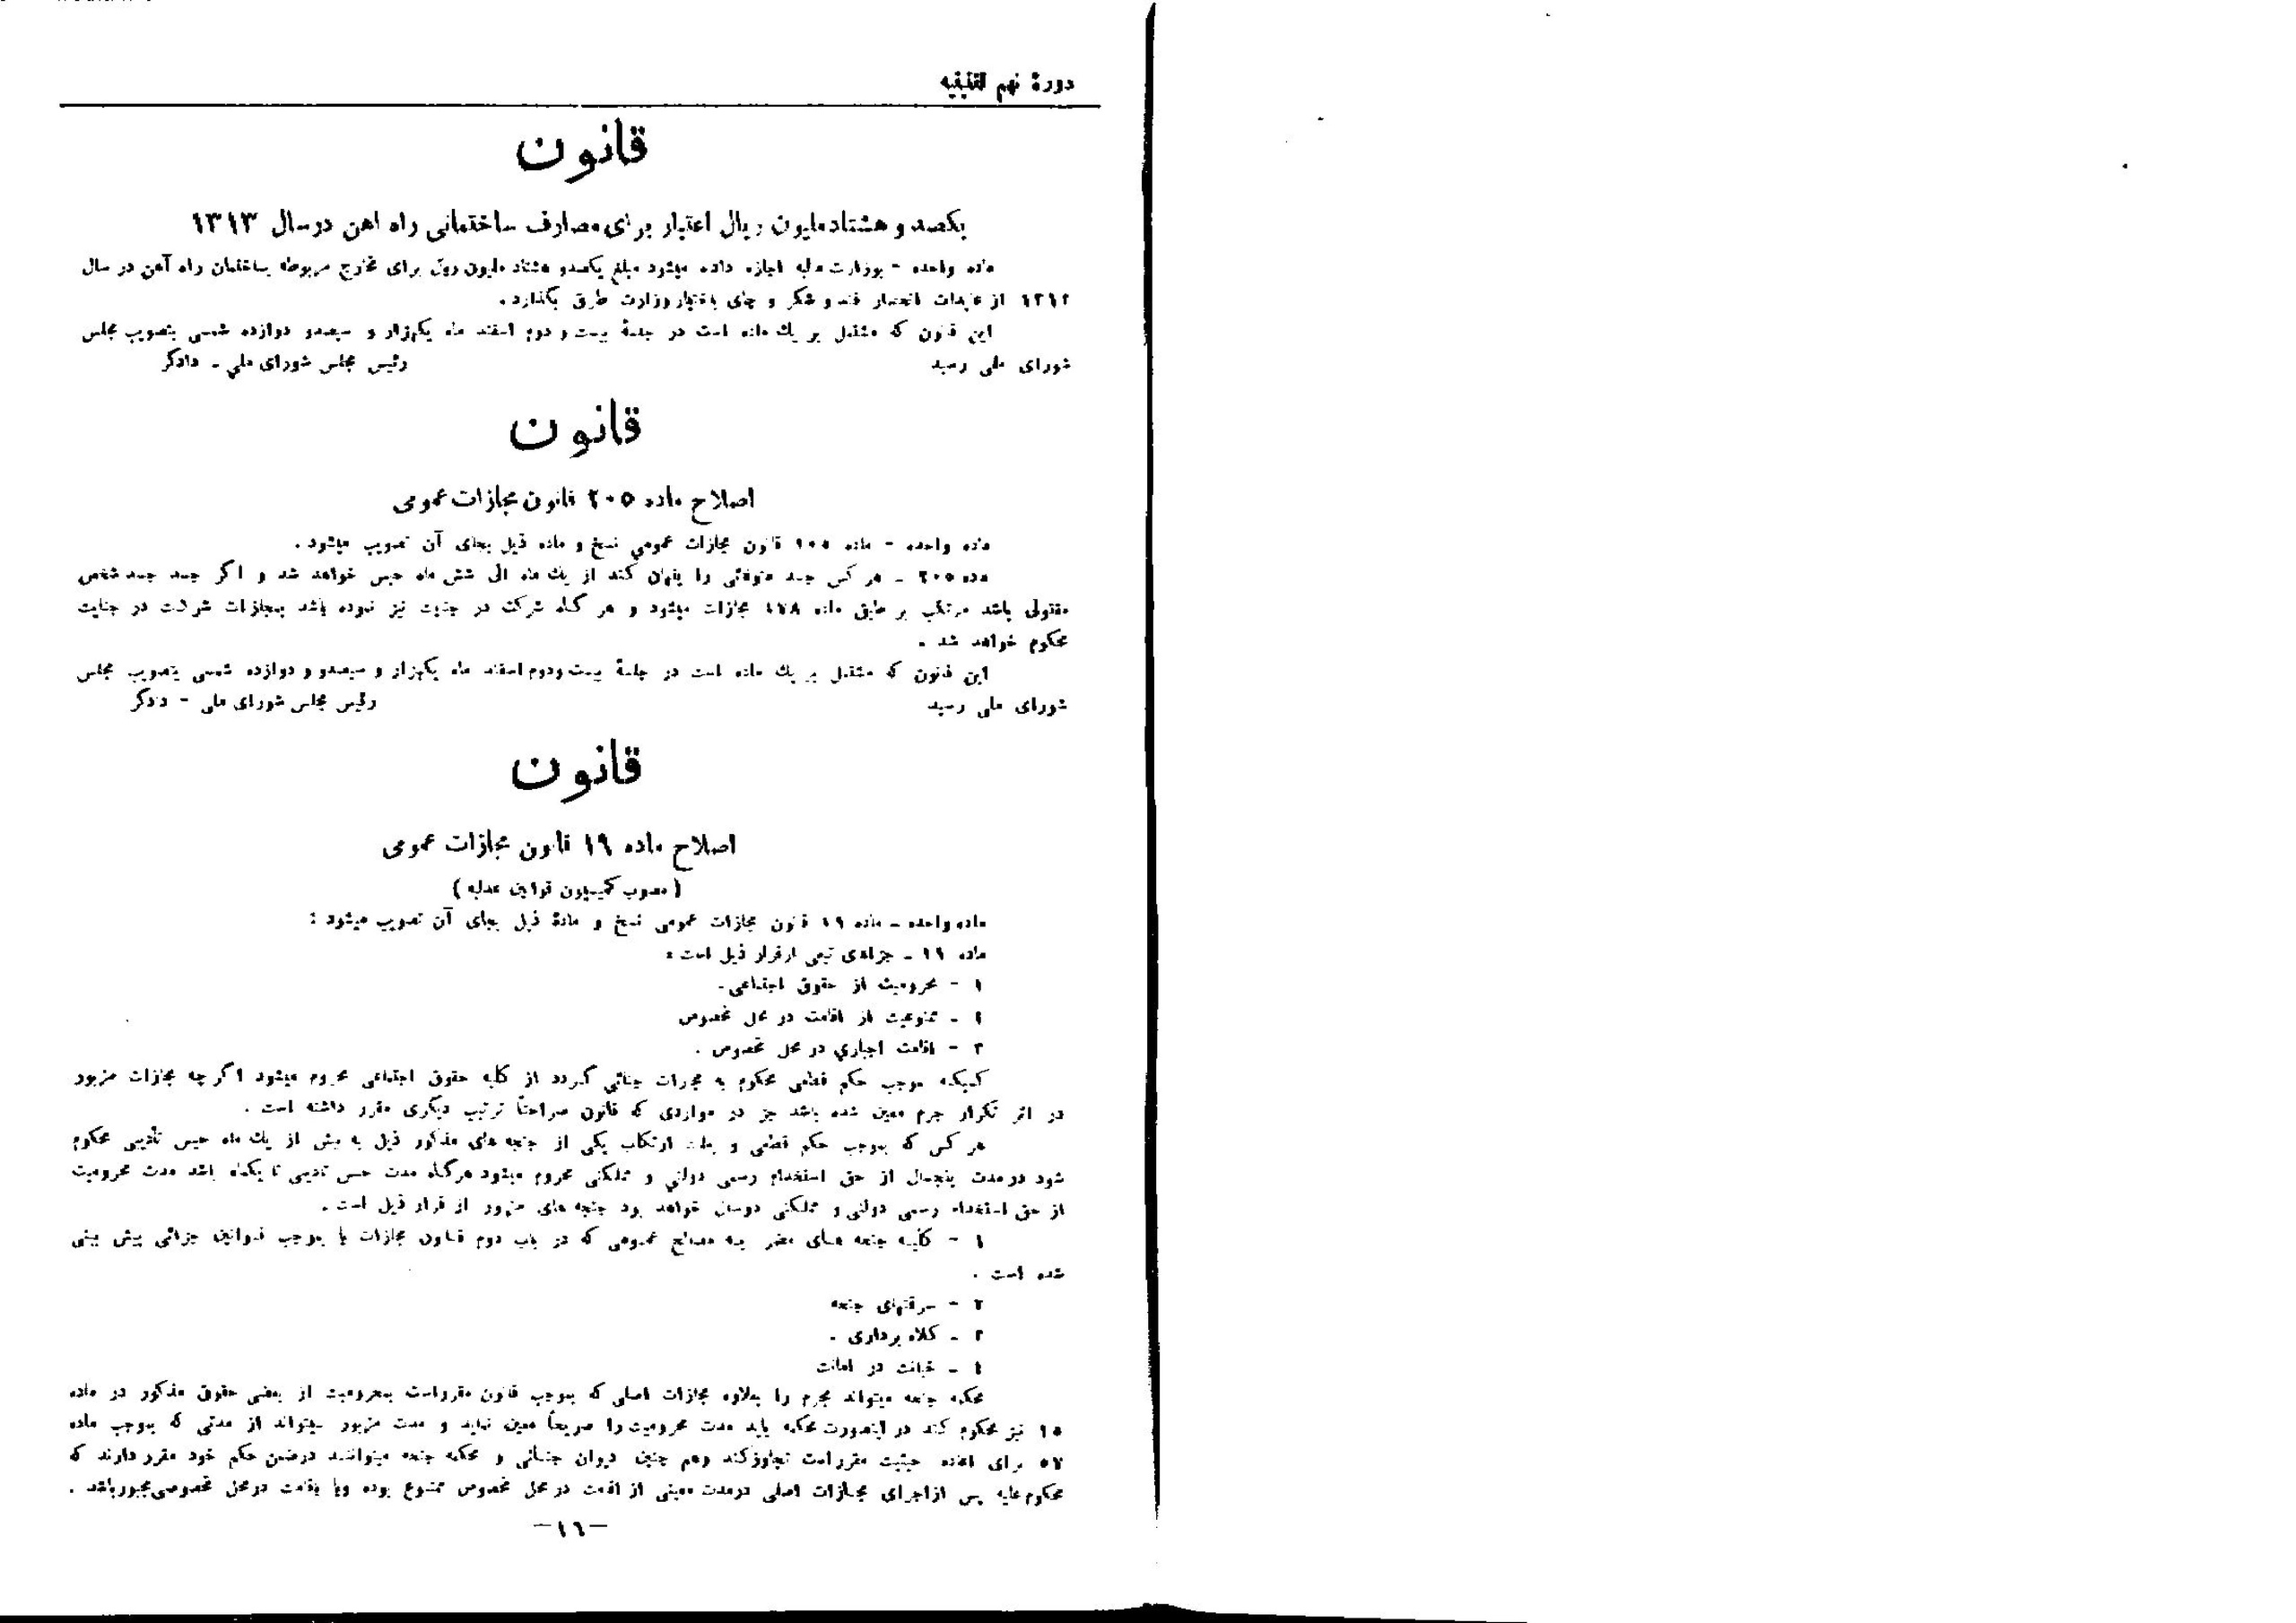 دورهٔ نهم تقنینیه
قانون
یکصد و هشتاد ملیون ریال اعتبار برای مصارف ساختمانی راه اهن در سال ۱۳۱۳
ماده واحده - بوزارت مالیه اجازه داده میشود مبلغ یکصد و هشتاد ملیون ریال برای مخارج مربوطه بساختمان راه آهن در سال
۱۳۱۳ از عایدات انحصار قند و شکر و چای باختیار وزارت طرق بگذارد .
این قانون که مشتمل بر یك ماده است در جلسهٔ بیست و دوم اسفند ماه یکهزار و سیصد و دوازده شمسی بتصویب مجلس
شورای ملی رسید رئیس مجلس شورای ملی - دادگر
قانون
اصلاح ماده ۲۰۵ قانون مجازات عمومی
ماده واحده - ماده ۲۰۵ قانون مجازات عمومی نسخ و ماده ذیل بجای آن تصویب میشود .
ماده ۲۰۵ - هر کس جسد متوفائی را پنهان کند از یك ماه الی شش ماه حبس خواهد شد و اگر جسد جسد شخص
مقتولی باشد مرتکب بر طبق ماده ۱۷۸ مجازات میشود و هر گاه شرکت در جنایت نیز نموده باشد بمجازات شرکت در جنایت
محکوم خواهد شد .
این قانون که مشتمل بر یك ماده است در جلسهٔ بیست و دوم اسفند ماه یکهزار و سیصد و دوازده شمسی بتصویب مجلس
شورای ملی رسید رئیس مجلس شورای ملی - دادگر
قانون
اصلاح ماده ۱۹ قانون مجازات عمومی
( مصوب کمیسیون قوانین عدلیه )
ماده واحده - ماده ۱۹ قانون مجازات عمومی نسخ و مادهٔ ذیل بجای آن تصویب میشود :
ماده ۱۹ - جزاهای تبعی از قرار ذیل است :
۱ - محرومیت از حقوق اجتماعی .
۲ - ممنوعیت از اقامت در محل مخصوص
۳ - اقامت اجباری در محل مخصوص .
کسیکه بموجب حکم قطعی محکوم به مجازات جنائی گردد از کلیه حقوق اجتماعی محروم میشود اگر چه مجازات مزبور
در اثر تکرار جرم معین شده باشد جز در مواردی که قانون صراحتاً ترتیب دیگری مقرر داشته است .
هر کس که بموجب حکم قطعی و بعلت ارتکاب یکی از جنحه های مذکور ذیل به بیش از یك ماه حبس تأدیبی محکوم
شود در مدت پنجسال از حق استخدام رسمی دولتی و مملکتی محروم میشود هر گاه مدت حبس تادیبی تا یکماه باشد مدت محرومیت
از حق استخدام رسمی دولتی و مملکتی دوسال خواهد بود جنحه های مزبور از قرار ذیل است .
۱ - کلیه جنحه های مضر به مصالح عمومی که در باب دوم قانون مجازات یا بموجب قوانین جزائی پیش بینی
شده است .
۲ - سرقتهای جنحه
۳ - کلاه برداری .
۴ - خیانت در امانت
محکمه جنحه میتواند مجرم را بعلاوه مجازات اصلی که بموجب قانون مقرر است بمحرومیت از بعضی حقوق مذکور در ماده
۱۵ نیز محکوم کند در اینصورت محکمه باید مدت محرومیت را صریحاً معین نماید و مدت مزبور نمیتواند از مدتی که بموجب ماده
۵۷ برای اعاده حیثیت مقرر است تجاوز کند وهم چنین دیوان جنائی و محکمه جنحه میتوانند در ضمن حکم خود مقرر دارند که
محکوم علیه پس از اجرای مجازات اصلی در مدت معینی از اقامت در محل مخصوص ممنوع بوده ویا باقامت در محل مخصوصی مجبور باشد .
-۱٦-